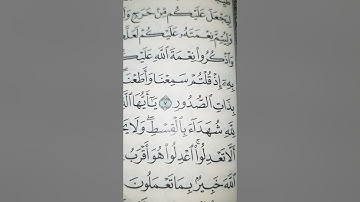 لِيَجْعَلَ عَلَيْكُم مِّنْ حَرَجٍ
وَلِيُتِمَّ نِعْمَتَهُۥ عَلَيْكُمْ
وَاذْكُرُوا۟ نِعْمَةَ اللَّهِ عَلَيْكُمْ
بِهِۦٓ إِذْ قُلْتُمْ سَمِعْنَا وَأَطَعْنَا
بِذَاتِ الصُّدُورِ ٧ يَٰٓأَيُّهَا
لِلَّهِ شُهَدَآءَ بِالْقِسْطِ وَلَا
أَلَّا تَعْدِلُوا۟ اعْدِلُوا۟ هُوَ أَقْرَبُ
اللَّهَ خَبِيرٌۢ بِمَا تَعْمَلُونَ